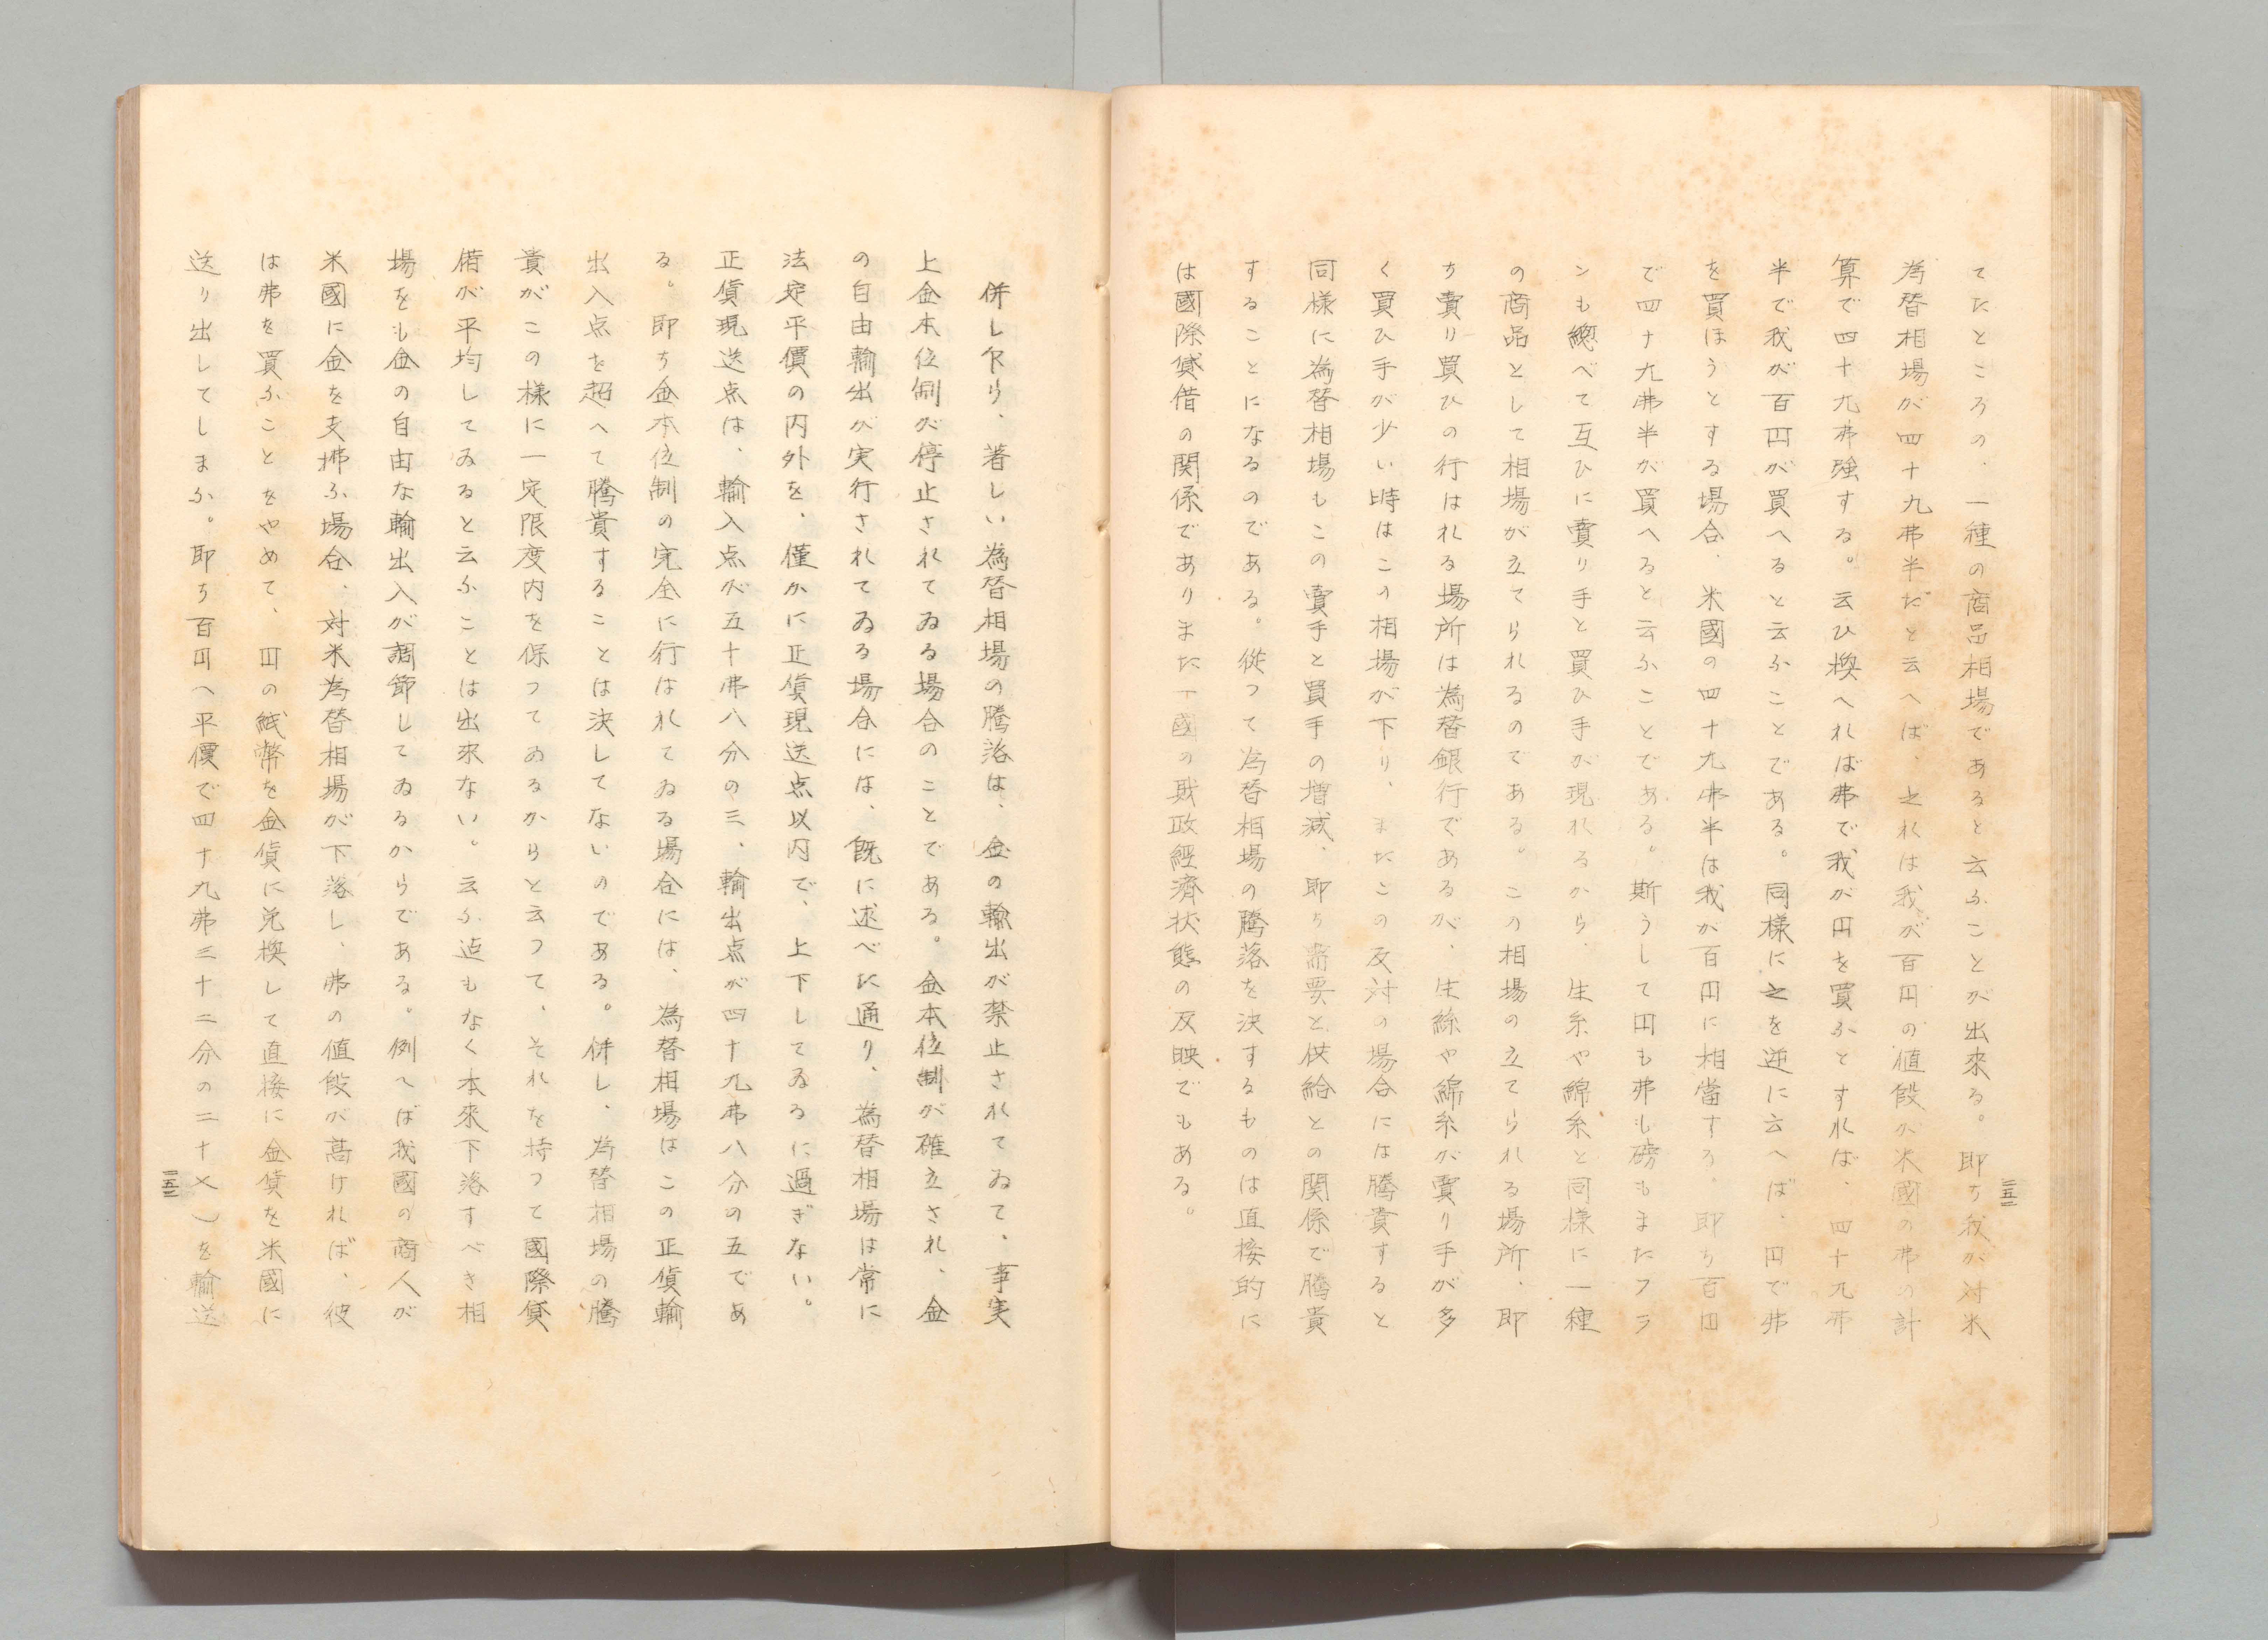 てたところの、一種の商品相場であると云ふことが出來る。即ち我が対米
為替相場が四十九弗半だと云へば、之れは我が百円の値段が米國の弗の計
算で四十九弗強する。云ひ換へれば弗で我が円を買ふとすれば、四十九弗
半で我が百円が買へると云ふことである。同様に之を逆に云へば、円で弗
を買はうとする場合、米國の四十九弗半は我が百円に相當する。即ち百円
で四十九弗半が買へると云ふことである。斯うして円も弗も磅もまたフラ
ンも總べて互ひに賣り手と買ひ手が現れるから、生糸や綿糸と同様に一種
の商品として相場が立てられるのである。この相場の立てられる場所、即
ち賣り買ひの行はれる場所は為替銀行であるが、生絲や綿糸が賣り手が多
く買ひ手が少い時はこの相場が下り、またこの反対の場合には騰貴すると
同様に為替相場もこの賣手と買手の増減、即ち需要と供給との関係で騰貴
することになるのである。從つて為替相場の騰落を決するものは直接的に
は國際貸借の関係でありまた一國の財政經濟状態の反映でもある。
三五二
併し乍ら、著しい為替相場の騰落は、金の輸出が禁止されてゐて、事実
上金本位制が停止されてゐる場合のことである。金本位制が確立され、金
の自由輸出が実行されてゐる場合には、既に述べた通り、為替相場は常に
法定平價の内外を、僅かに正貨現送点以内で、上下してゐるに過ぎない。
正貨現送点は、輸入点が五十弗八分の三、輸出点が四十九弗八分の五であ
る。即ち金本位制の完全に行はれてゐる場合には、為替相場はこの正貨輸
出入点を超へて騰貴することは決してないのである。併し、為替相場の騰
貴がこの様に一定限度内を保つてゐるからと云つて、それを持つて國際貸
借が平均してゐると云ふことは出來ない。云ふ迄もなく本來下落すべき相
場をも金の自由な輸出入が調節してゐるからである。例へば我國の商人が
米國に金を支拂ふ場合、対米為替相場が下落し、弗の値段が高ければ、彼
は弗を買ふことをやめて、円の紙幣を金貨に兌換して直接に金貨を米國に
送り出してしまふ。即ち百円へ平價で四十九弗三十二分の二十乂)を輸送
三五三